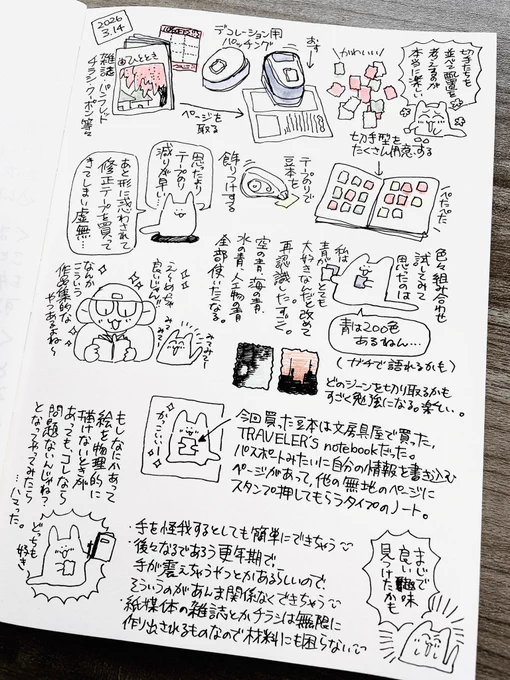 2026
3.14
雑誌・パンフレット
チラシ・クーポン等々
ひととき
ページを
取る
デコレーション用
パッチング
おす
かわいい
切手型を
たくさん用意する
切手たちを
並べる配置を
考えるのが
本当に楽しい
ペたぺた
テープのりで
豆本を
飾りつけする
思ったより
テープのり
減り早…
あと形に惑わされて
修正テープを買って
きてしまい虚無…
色々組み合わせ
試してみて
思ったのは
私は
青がとても
大好きなんだと改めて
再認識したっすぐ。
空の青、海の青、
水の青、人工物の青
全部使いたくなる。
青は200色
あるねん…
(ガチで語れるかも)
どのシーンを切り取るかも
すごく勉強になる。楽しい。
みてみて〜
みて
えーめっちゃ
良いじゃん!!
なんか
こういう
作品集的な
やつあるよね〜
かっこいい!
今回買った豆本は文房具屋で買った、
TRAVELER'S notebookだった。
パスポートみたいに自分の情報を書き込む
ページがあって、他の無地のページに
スタンプ押してもらうタイプのノート。
もしなにかあって
絵を物理的に
描けないときが
あってもコレなら
問題ないんじゃね?
となってやってみたら
…ハマった。
どっちも
好き
・手を怪我するとしても簡単にできちゃう
・後々なるであろう更年期で、
手が震えちゃうやつとかあるらしいので、
そういうのがあんま関係なくできちゃう
・紙媒体の雑誌とかチラシは無限に
作り出されるものなので材料にも困らない
まじで
良い趣味
見つけたかも